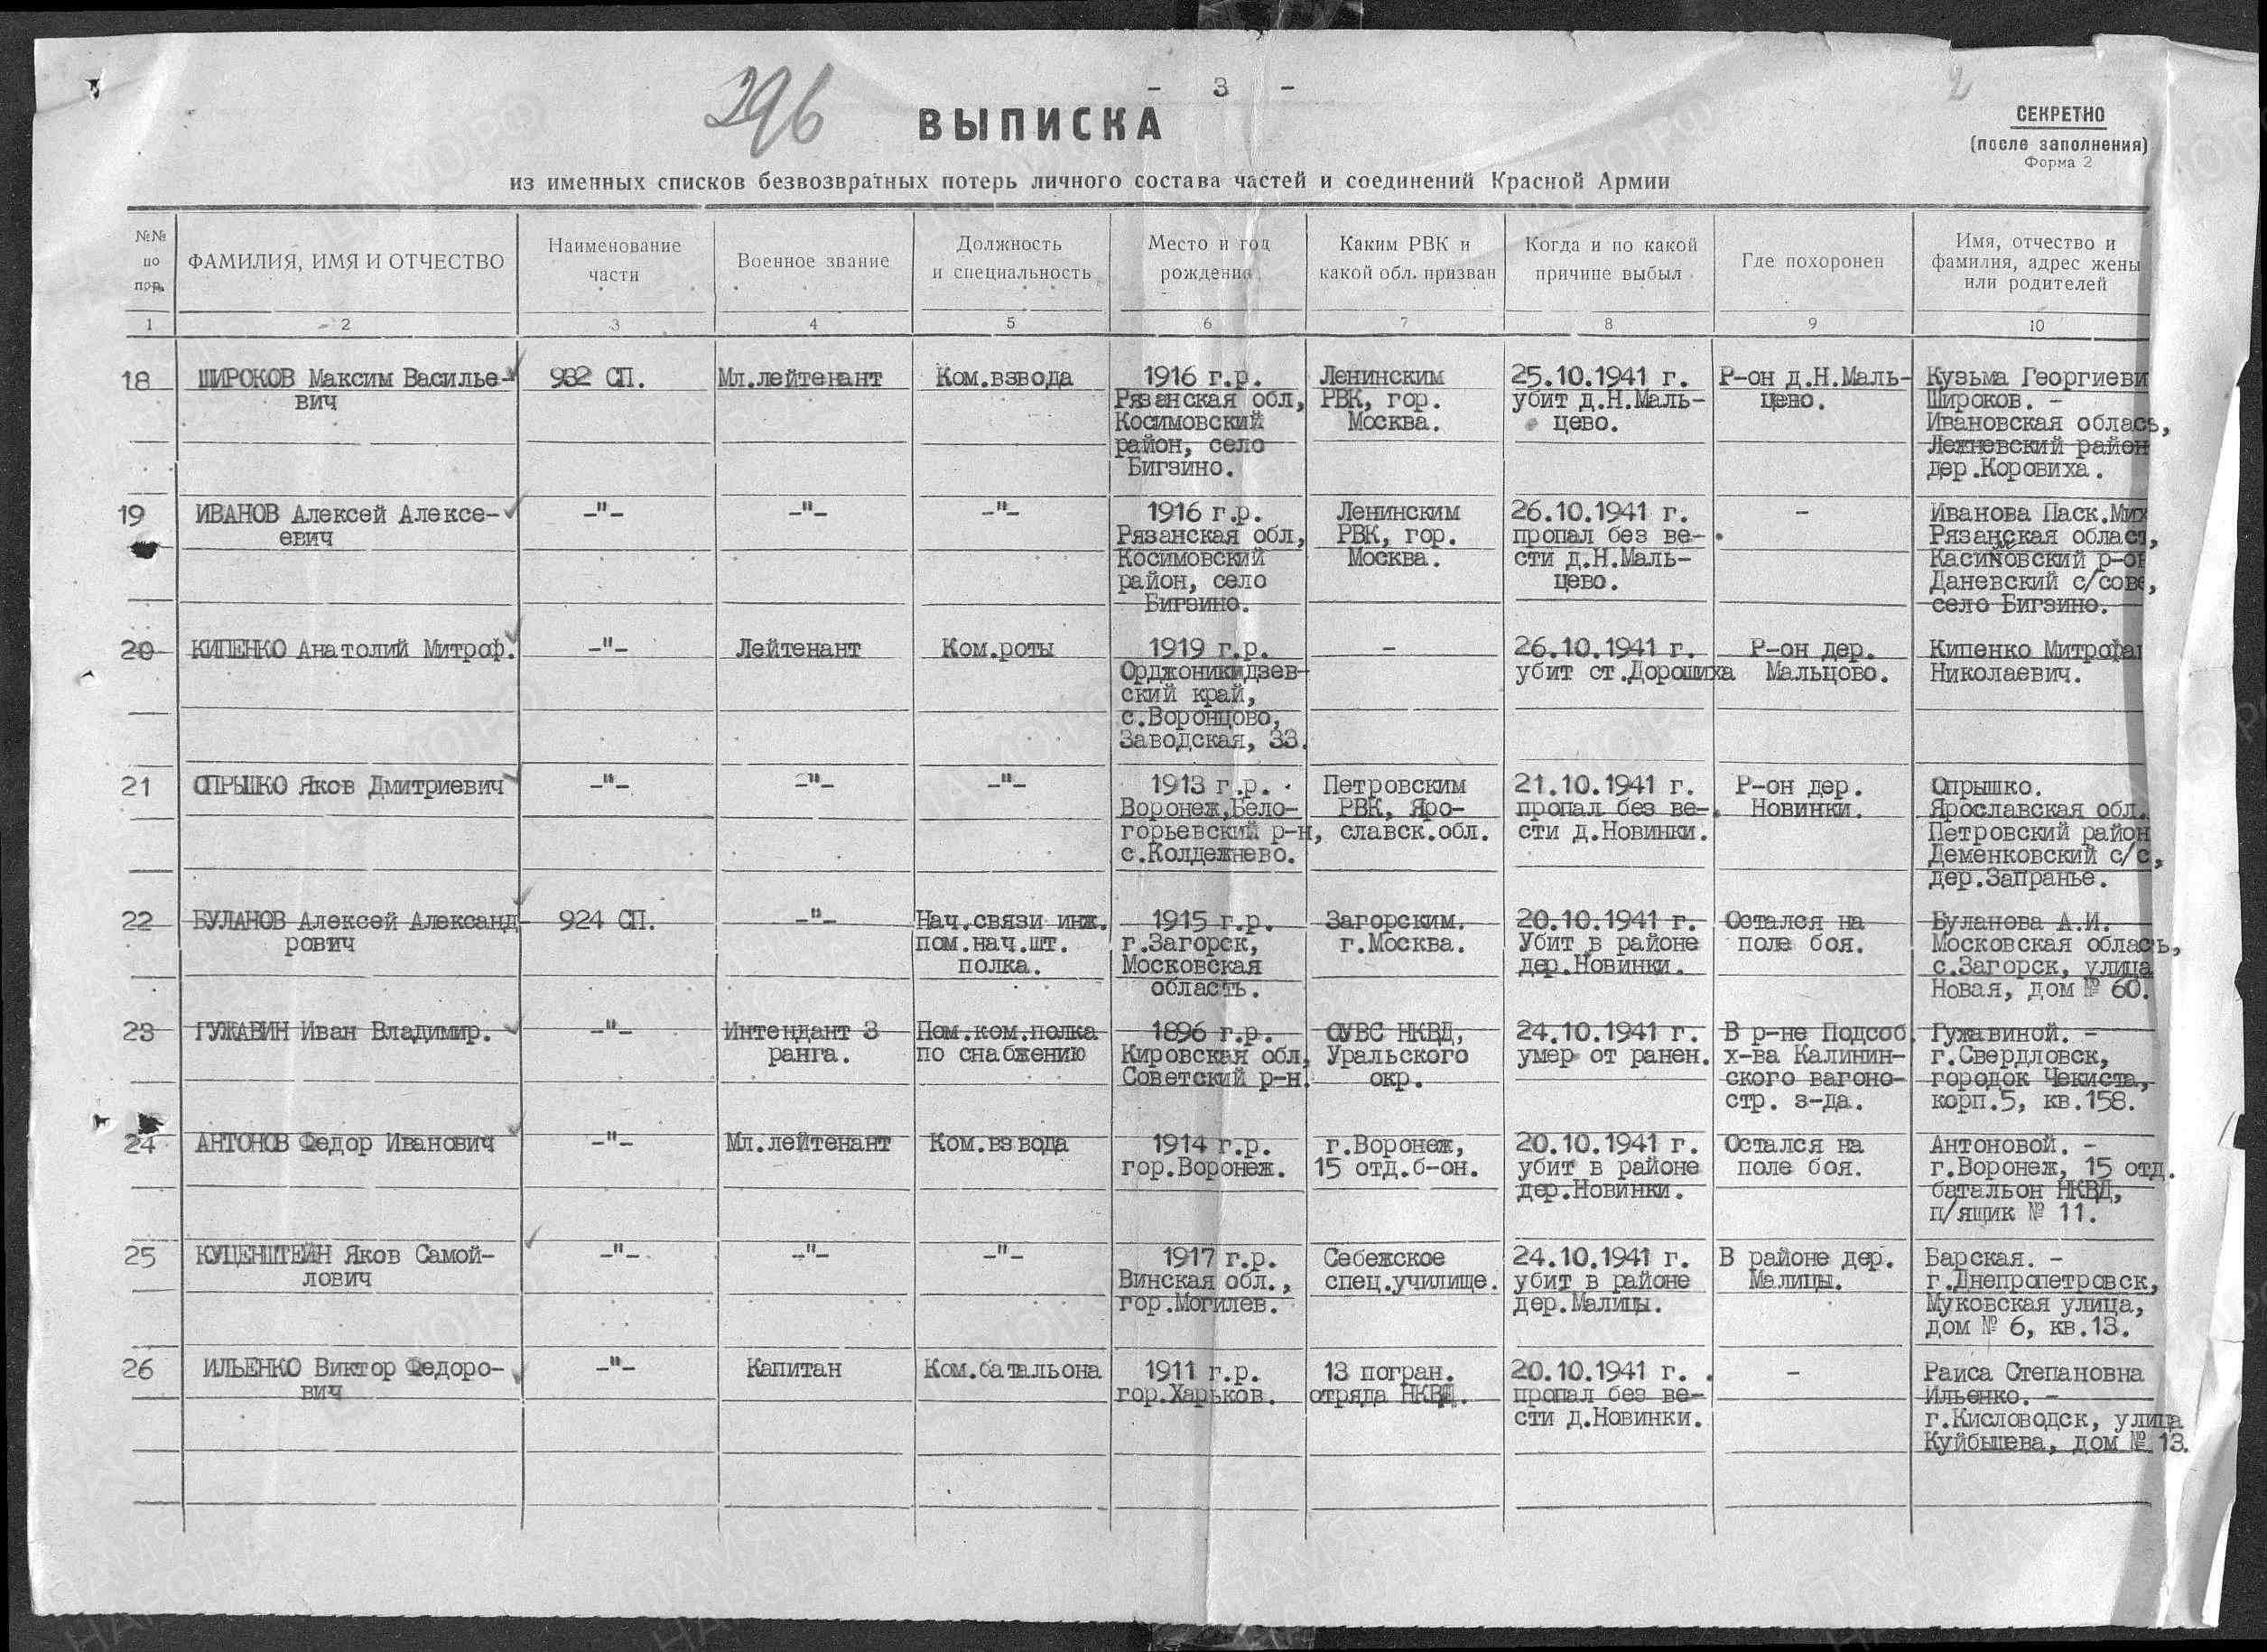 - 3 -
296
2
ВЫПИСКА
СЕКРЕТНО
(после заполнения)
Форма 2
из именных списков безвозвратных потерь личного состава частей и соединений Красной Армии
№№ по пор.
ФАМИЛИЯ, ИМЯ И ОТЧЕСТВО
Наименование части
Военное звание
Должность и специальность
Место и год рождения
Каким РВК и какой обл. призван
Когда и по какой причине выбыл
Где похоронен
Имя, отчество и фамилия, адрес жены или родителей
1 2 3 4 5 6 7 8 9 10
18 ШИРОКОВ Максим Василье- 932 СП. Мл.лейтенант Ком.взвода 1916 г.р. Ленинским 25.10.1941 г. Р-он д.Н.Маль- Кузьма Георгиеви
вич Рязанская обл, РВК, гор. убит д.Н.Маль- цево. Широков. -
Косимовский Москва. цево. Ивановская облась,
район, село Лежневский район
Бигзино. дер.Коровиха.
19 ИВАНОВ Алексей Алексе- -"- -"- -"- 1916 г.р. Ленинским 26.10.1941 г. - Иванова Паск.Мих
евич Рязанская обл, РВК, гор. пропал без ве- Рязанская област,
Косимовский Москва. сти д.Н.Маль- Касимовский р-он
район, село цево. Даневский с/сове,
Бигзино. село Бигзино.
20 КИПЕНКО Анатолий Митроф. -"- Лейтенант Ком.роты 1919 г.р. - 26.10.1941 г. Р-он дер. Кипенко Митрофан
Орджоникидзев- убит ст.Дорошиха Мальцово. Николаевич.
ский край,
с.Воронцово,
Заводская, 33.
21 ОПРЫШКО Яков Дмитриевич -"- -"- -"- 1913 г.р. Петровским 21.10.1941 г. Р-он дер. Опрышко.
Воронеж,Бело- РВК, Яро- пропал без ве- Новинки. Ярославская обл.
горьевский р-н, славск.обл. сти д.Новинки. Петровский район
с.Колдежнево. Деменковский с/с,
дер.Запранье.
22 БУЛАНОВ Алексей Александ 924 СП. -"- Нач.связи инж. 1915 г.р. Загорским. 20.10.1941 г. Остался на Буланова А.И.
рович пом.нач.шт. г.Загорск, г.Москва. Убит в районе поле боя. Московская облась,
полка. Московская дер.Новинки. с.Загорск, улица
область. Новая, дом № 60.
23 ГУЖАВИН Иван Владимир. -"- Интендант 3 Пом.ком.полка 1896 г.р. ОУВС НКВД, 24.10.1941 г. В р-не Подсоб. Гужавиной. -
ранга. по снабжению Кировская обл, Уральского умер от ранен. х-ва Калинин- г.Свердловск,
Советский р-н. окр. ского вагоно- городок Чекиста,
стр. з-да. корп.5, кв.158.
24 АНТОНОВ Федор Иванович -"- Мл.лейтенант Ком.взвода 1914 г.р. г.Воронеж, 20.10.1941 г. Остался на Антоновой. -
гор.Воронеж. 15 отд.б-он. убит в районе поле боя. г.Воронеж, 15 отд.
дер.Новинки. батальон НКВД,
п/ящик № 11.
25 КУЦЕНШТЕЙН Яков Самой- -"- -"- -"- 1917 г.р. Себежское 24.10.1941 г. В районе дер. Барская. -
лович Винская обл., спец.училище. убит в районе Малицы. г.Днепропетровск,
гор.Могилев. дер.Малицы. Муковская улица,
дом № 6, кв.13.
26 ИЛЬЕНКО Виктор Федоро- -"- Капитан Ком.батальона 1911 г.р. 13 погран. 20.10.1941 г. - Раиса Степановна
вич гор.Харьков. отряда НКВД. пропал без ве- Ильенко. -
сти д.Новинки. г.Кисловодск, улица
Куйбышева, дом № 13.